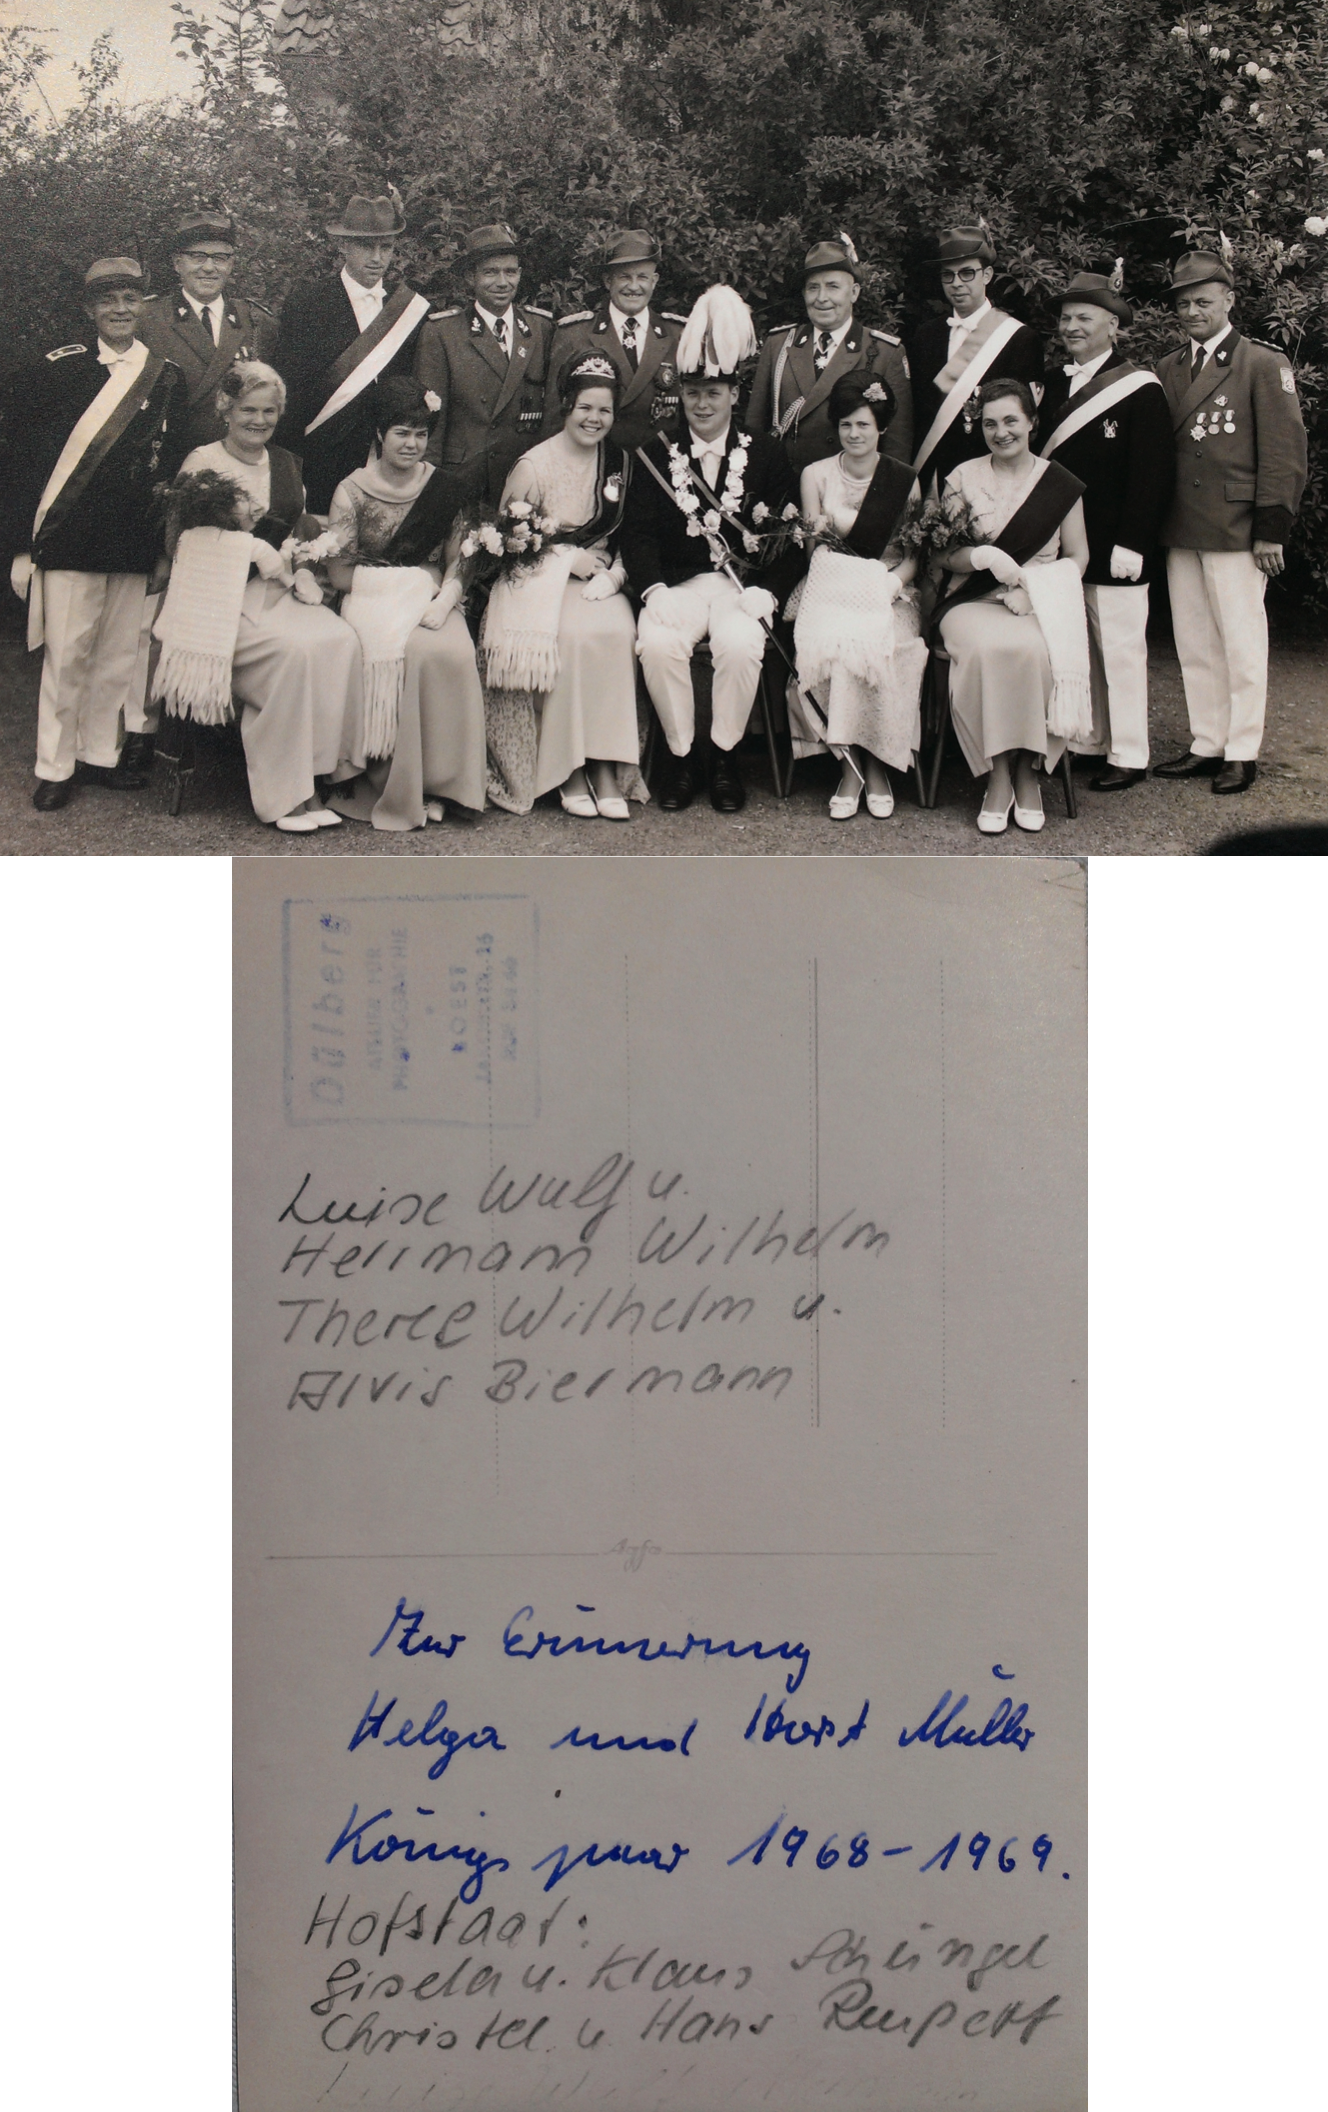 Dülberg
ATELIER FÜR
PHOTOGRAPHIE
SOEST
Luise Wulf u.
Herrmann Wilhelm
Therese Wilhelm u.
Alvis Biermann
Agfa
Zur Erinnerung
Helga und Horst Müller
Königspaar 1968-1969.
Hofstaat:
Gisela u. Klaus Schüngel
Christel u Hans Ruspert
Luise Wulf